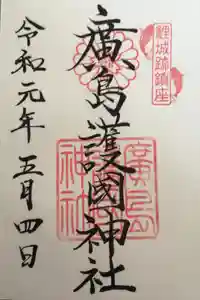 鯉城跡鎮座
廣島護國神社
令和元年五月四日
廣島護國神社